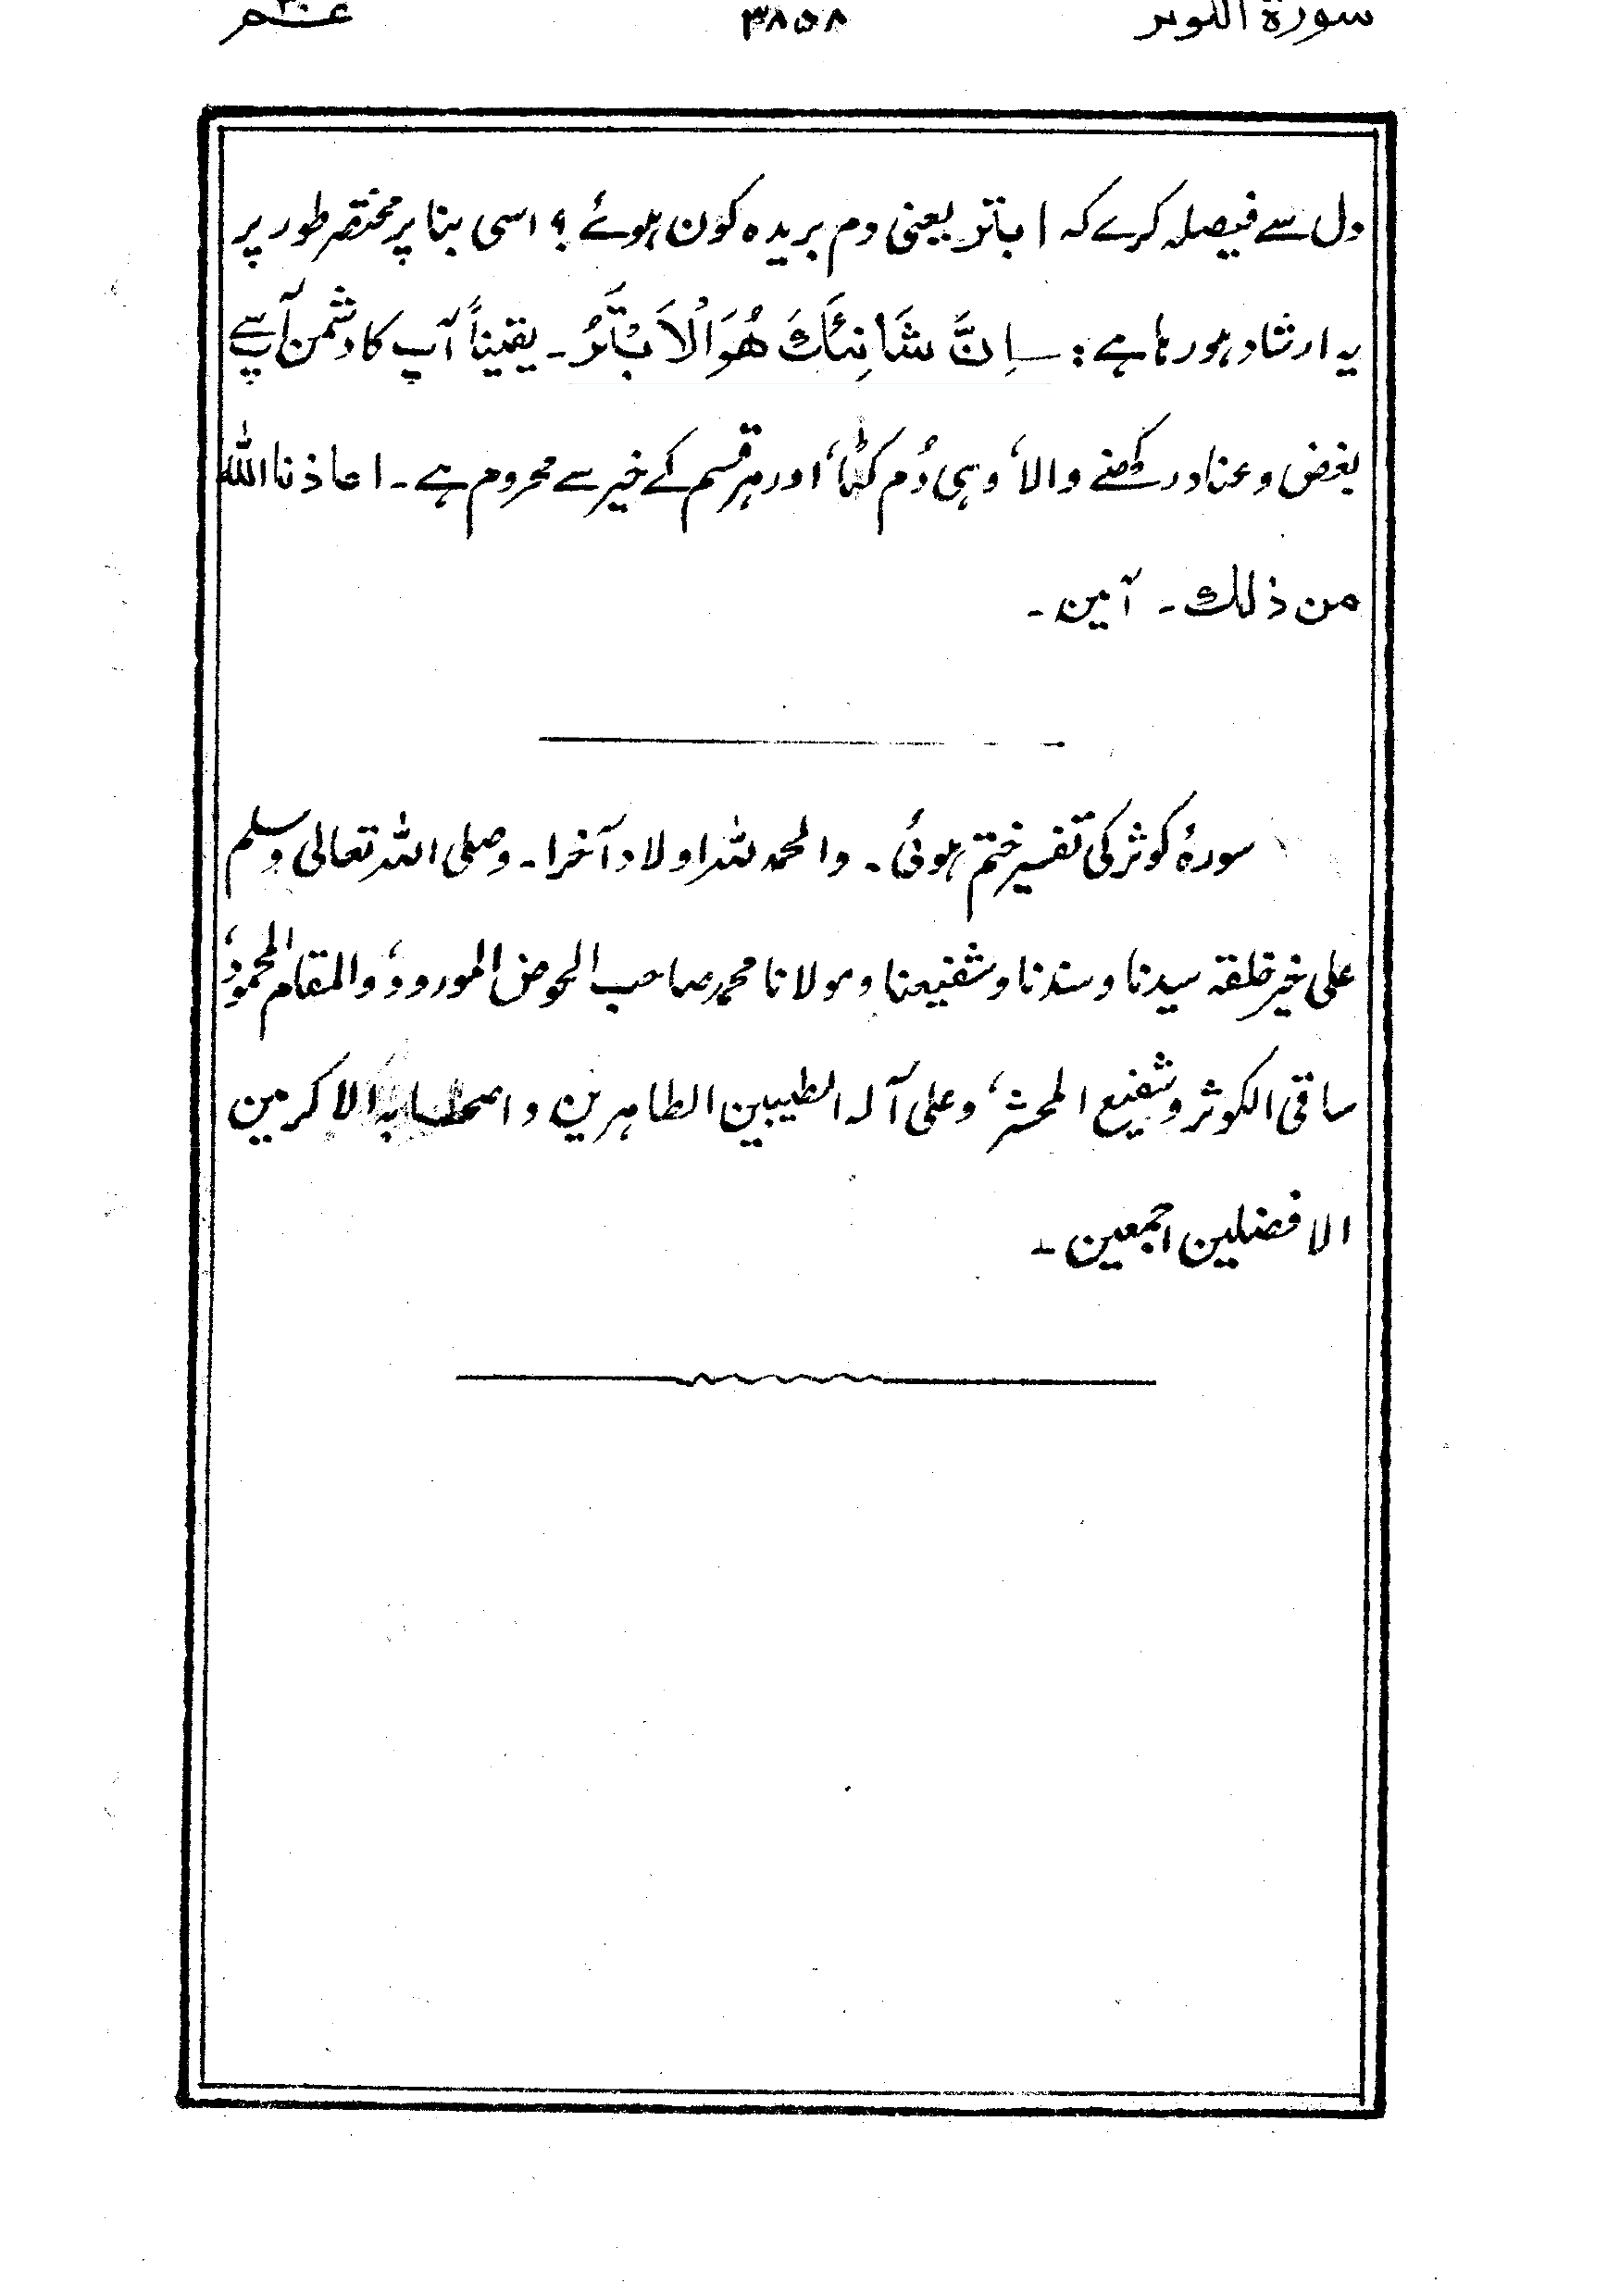 سورة الكوثر ۳۸۵۸ عـــم ۳۰
دل سے فیصلہ کرے کہ ابتر یعنی دم بریدہ کون ہوئے ؟ اسی بنا پر مختصر طور پر
یہ ارشاد ہو رہا ہے : اِنَّ شَانِئَكَ هُوَ الْاَبْتَرُ ۔ یقیناً آپ کا دشمن آپ سے
بغض و عناد رکھنے والا، وہی دُم کٹا، اور ہر قسم کے خیر سے محروم ہے ۔ اعاذنا الله
من ذلك ۔ آمین ۔
سورہٴ کوثر کی تفسیر ختم ہوئی ۔ والحمد للہ اولا و آخرا ۔ وصلی اللہ تعالی وسلم
علی خیر خلقہ سیدنا وسندنا وشفیعنا ومولانا محمد صاحب الحوض المورود، والمقام المحمود،
ساقی الکوثر وشفیع المحشر، وعلی آلہ الطیبین الطاہرین واصحابہ الاکرمین
الافضلین اجمعین ۔